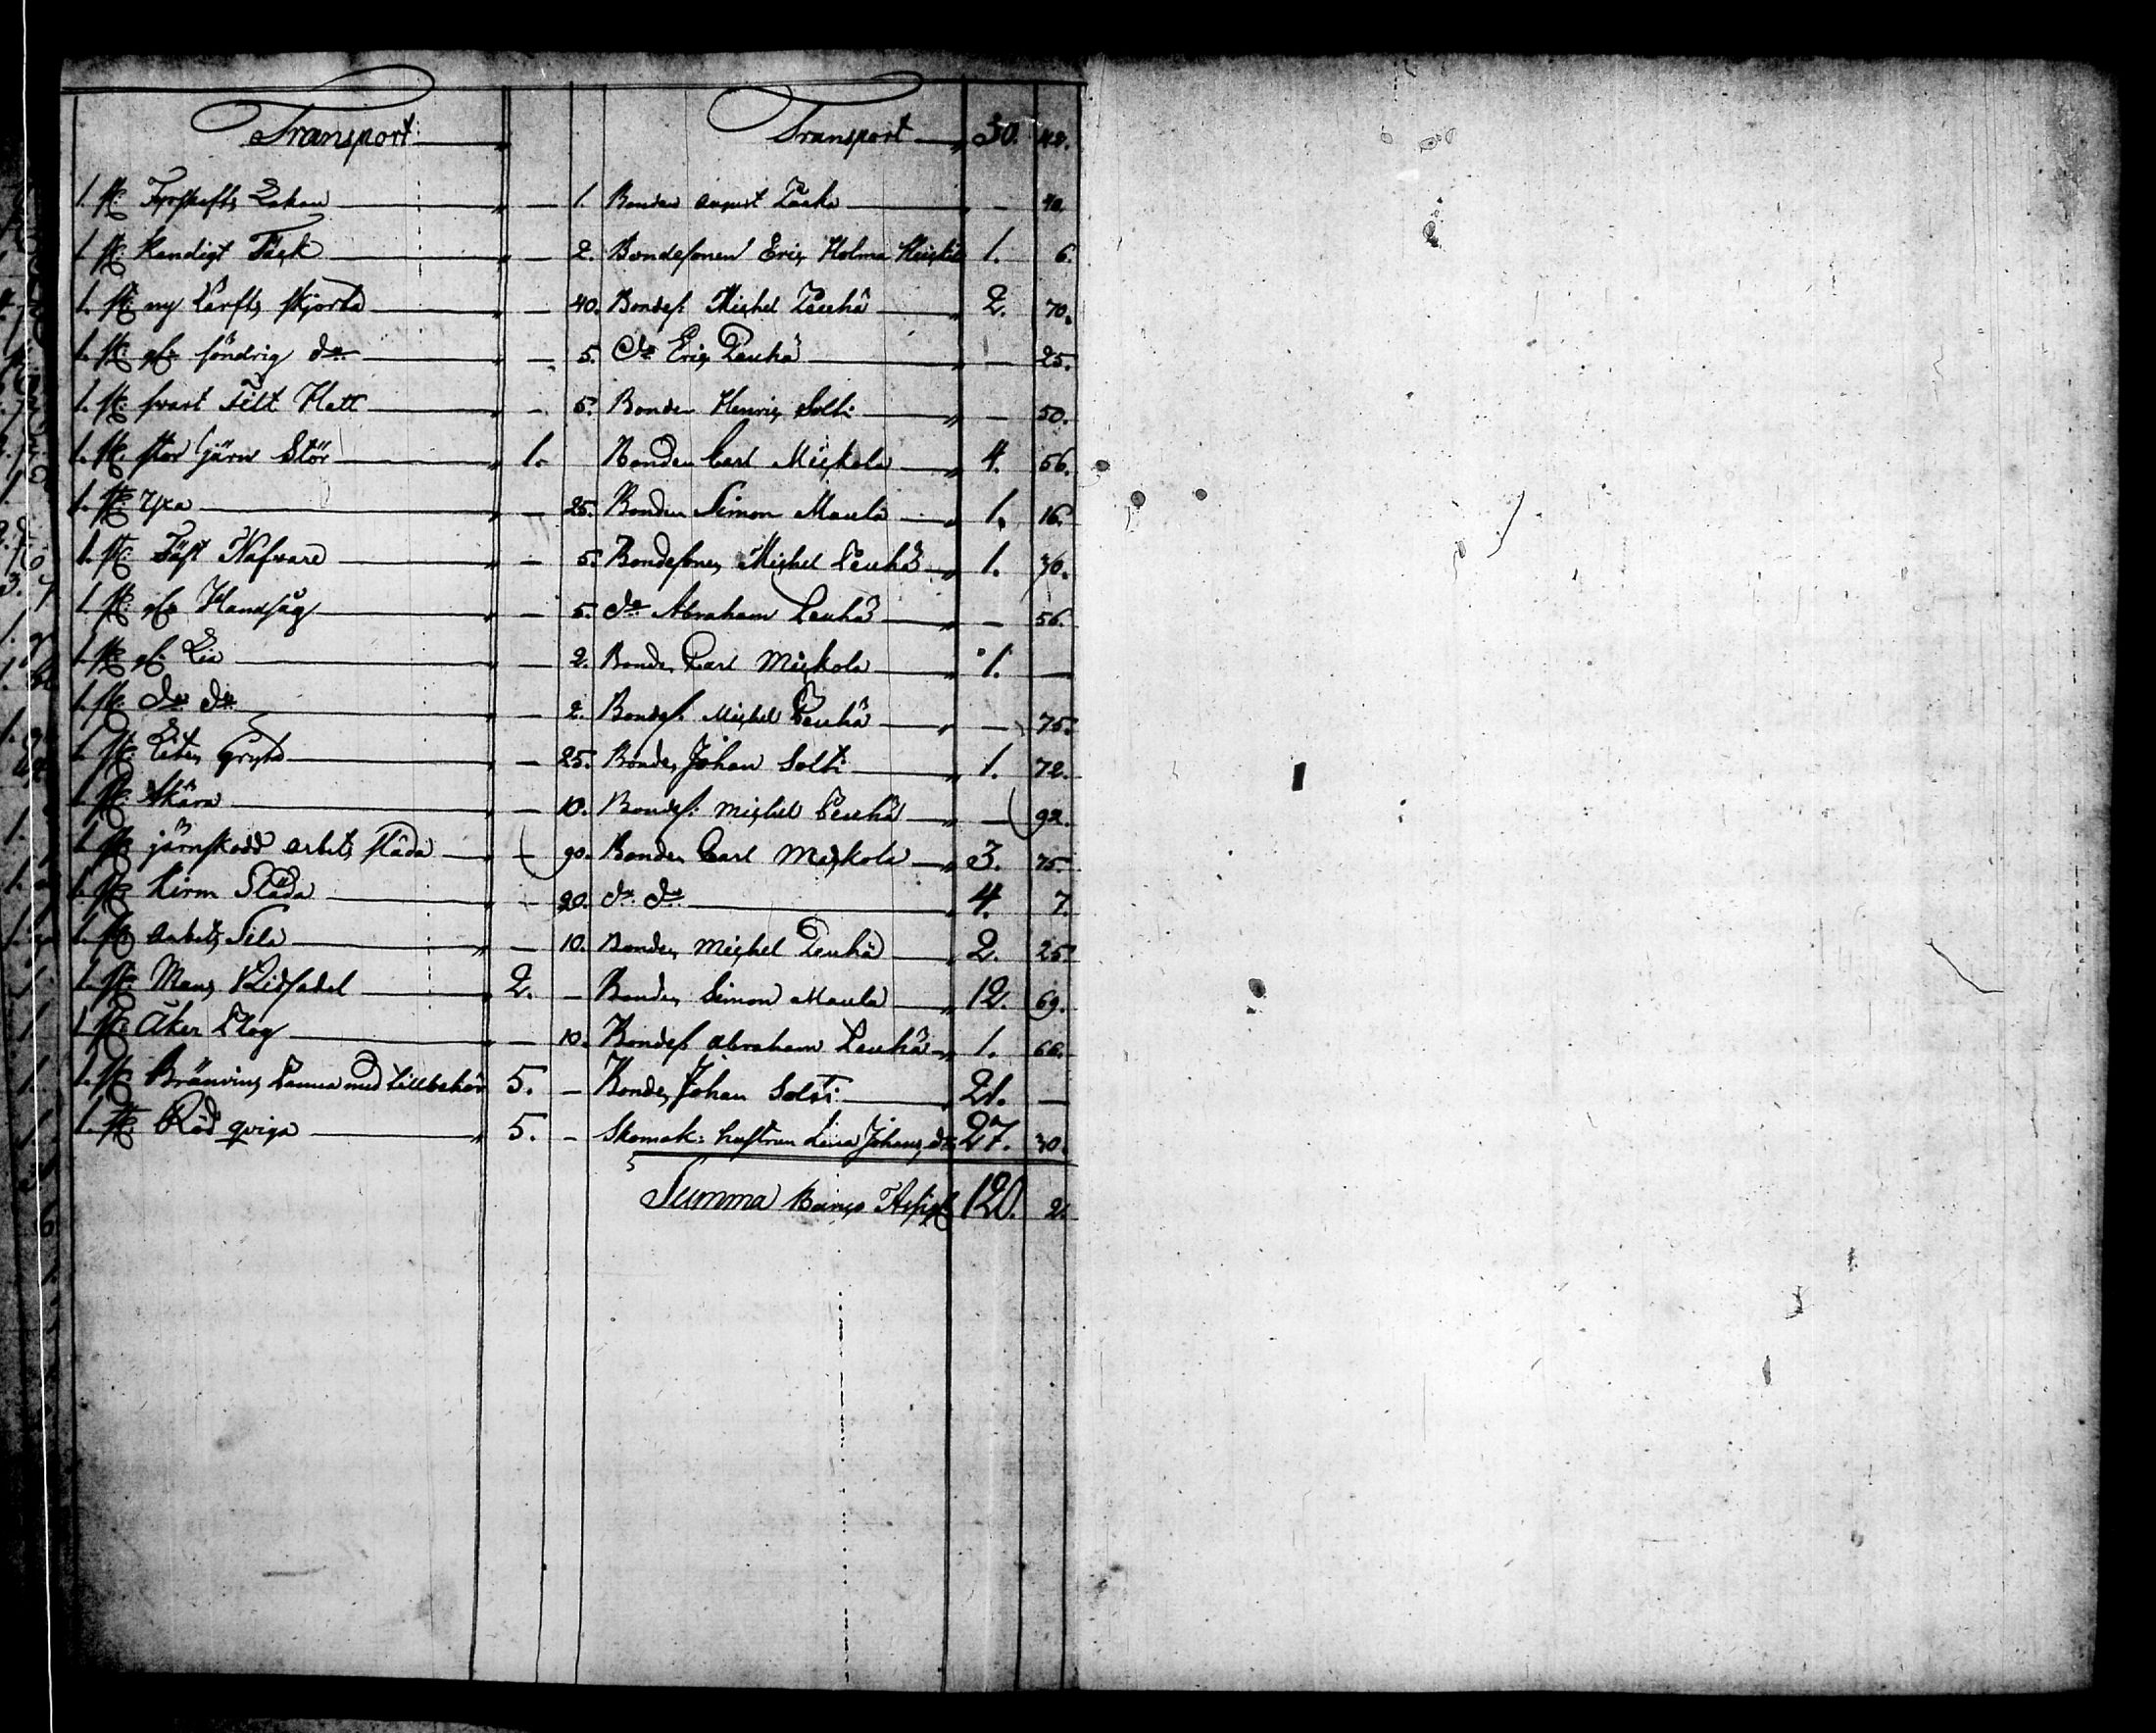 Transport Transport 30. 42.
1. st. Fyrskafts Lakan — 1. Bonden August — 40.
1. st. Randigt Täck — 2. Bondesonen Eric Holma 1. 6.
1. st. ny Lärfts skjorta — 40. Bondes. Michel Leuhä 2. 70.
1. st. gl. söndrig do — 5. do Eric Leuhä — 25.
1. st. svart Filt Hatt — 5. Bonden Henric Solti — 50.
1. st. stor järn Stör 1. Bonden Carl Mickola 4. 56.
1. st. Yxa — 25. Bonden Simon Maula 1. 16.
1. st. Nafvare — 5. Bondesonen Michel Leuhä 1. 30.
1. st. gl. Handsåg — 5. do Abraham Leuhä — 56.
1. st. gl. Lia — 2. Bonden Carl Mickola 1. —
1. st. do do — 2. Bondes. Michel Leuhä — 75.
1. st. Liten gryta — 25. Bonden Johan Solti 1. 72.
1. st. Skära — 10. Bondes. Michel Leuhä — 92.
1. st. järnskodd arbets släda — 90. Bonden Carl Mickola 3. 75.
1. st. Kirm Släda — 20. do do 4. 7.
1. st. Arbets Sela — 10. Bonden Michel Leuhä 2. 25.
1. st. Mans Ridsadel 2. — Bonden Simon Maula 12. 69.
1 st. Åker Plog — 10. Bondes. Abraham Leuhä 1. 60.
1. st. Bränvins Panna med tillbehör 5. — Bonden Johan Solti 21. —
1. st. Röd qviga 5. — Skomak: hustrun Lisa Johans dr 27. 30.
Summa Banco Assign 120. 2.